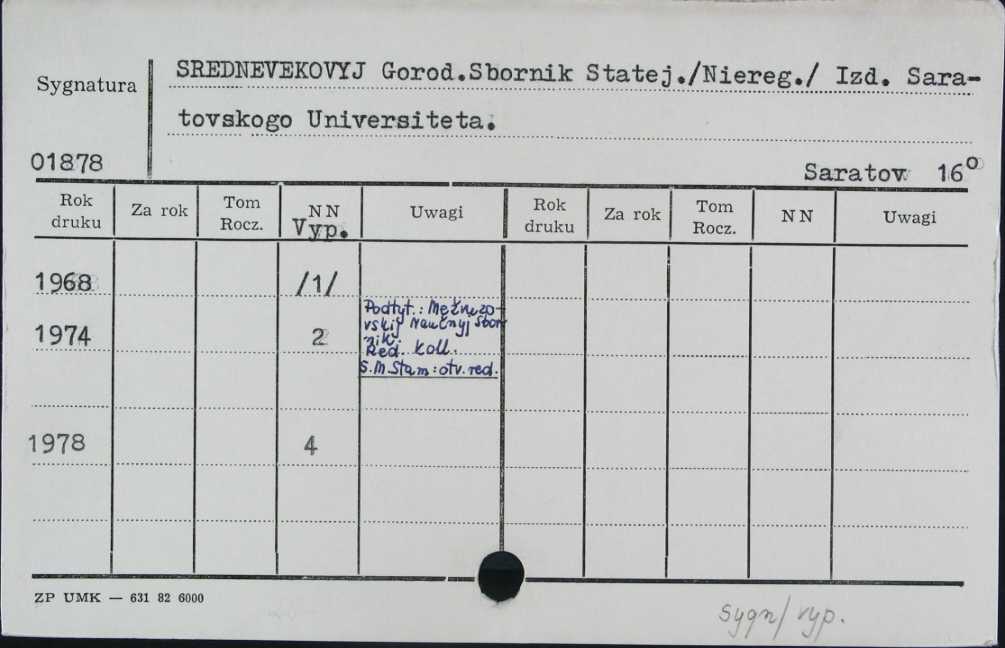 SREDNEVEKOVYJ Gorod.Sbornik Statej./Niereg./ Izd. Sara-
Sygnatura
tovskogo Universiteta.
01878
Saratov 16°
Rok druku Za rok Tom Rocz. NN Vyp. Uwagi Rok druku Za rok Tom Rocz. NN Uwagi
1968 /1/
1974 2
Podtyt.: Mežvuzo-
vskij Naučnyj Sbor-
nik.
Red. Koll.
S.M.Stam: otv. red.
1978 4
ZP UMK — 631 82 6000
sygn/ vyp.